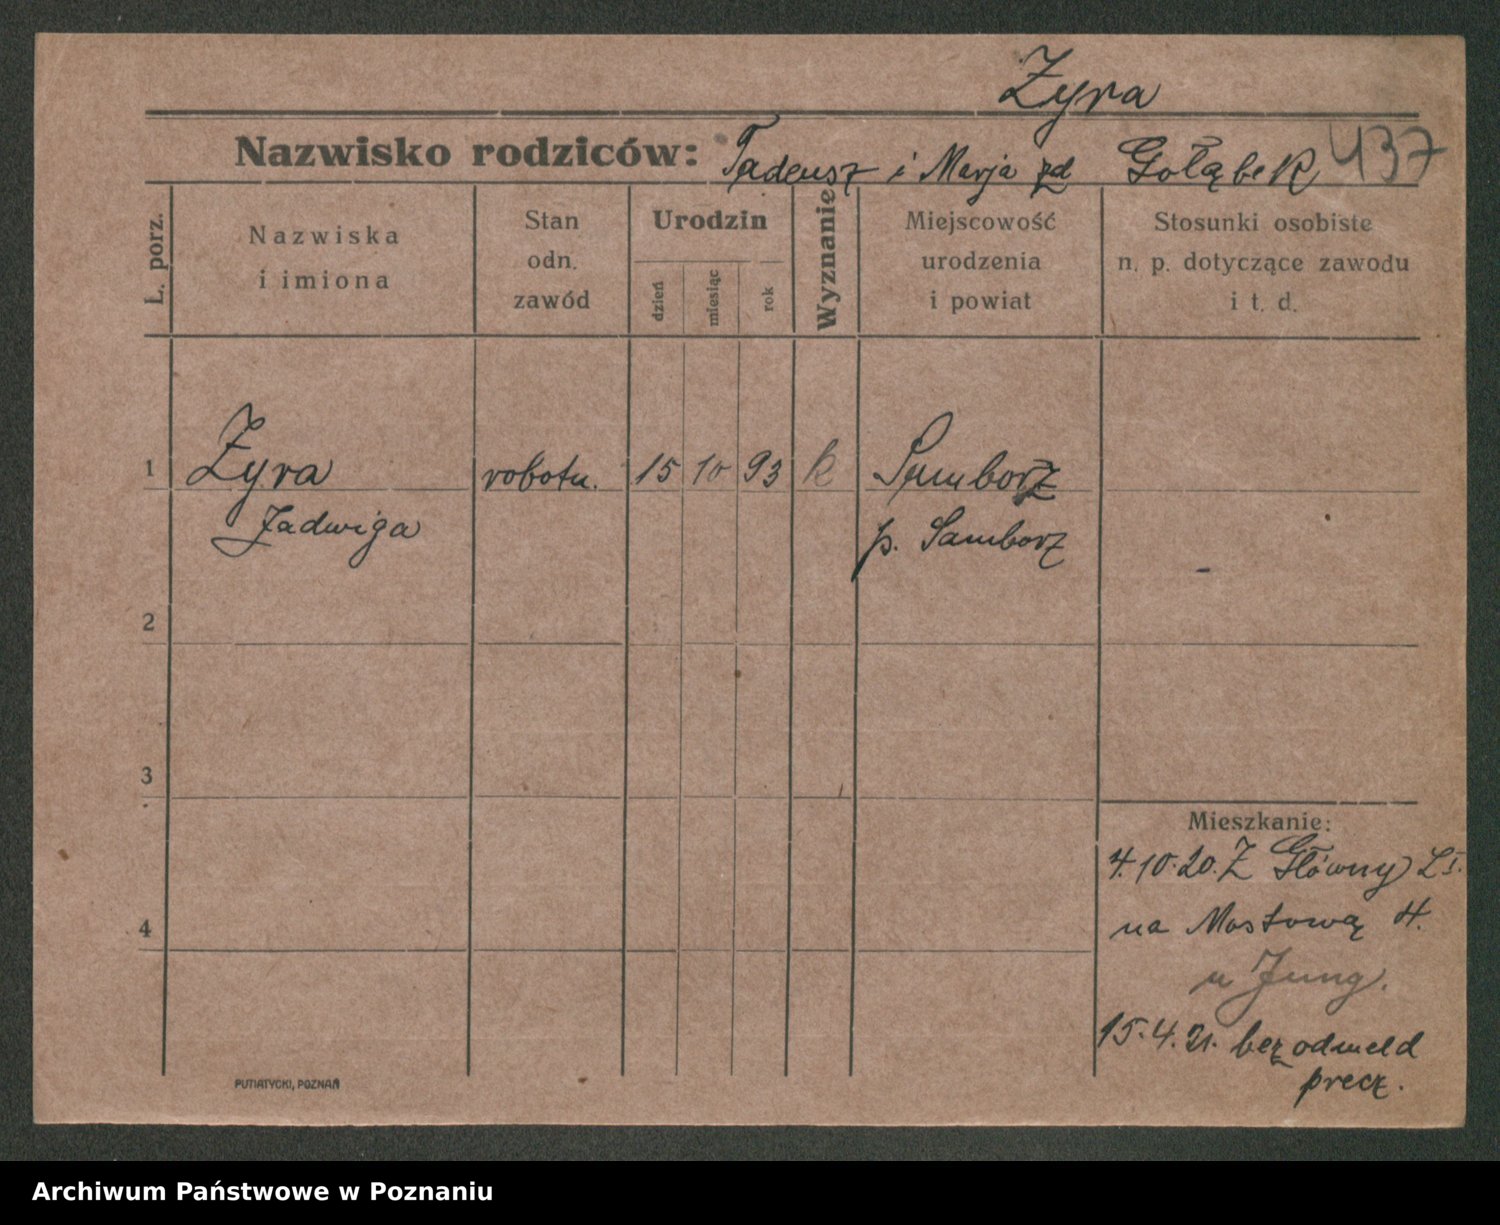 Żyra
Nazwisko rodziców: Tadeusz i Marja zd Gołąbek 437
L. porz.
Nazwiska
i imiona
Stan
odn.
zawód
Urodzin
dzień
miesiąc
rok
Wyznanie
Miejscowość
urodzenia
i powiat
Stosunki osobiste
n. p. dotyczące zawodu
i t. d.
1 Żyra robotn. 15 10 93 k Samborz
Jadwiga p. Samborz
2
3
Mieszkanie:
4.10.20. Z Główny
na Mostową 4.
u Jung.
4
15.4.21. bez odmeld
precz.
PUTIATYCKI, POZNAŃ
Archiwum Państwowe w Poznaniu